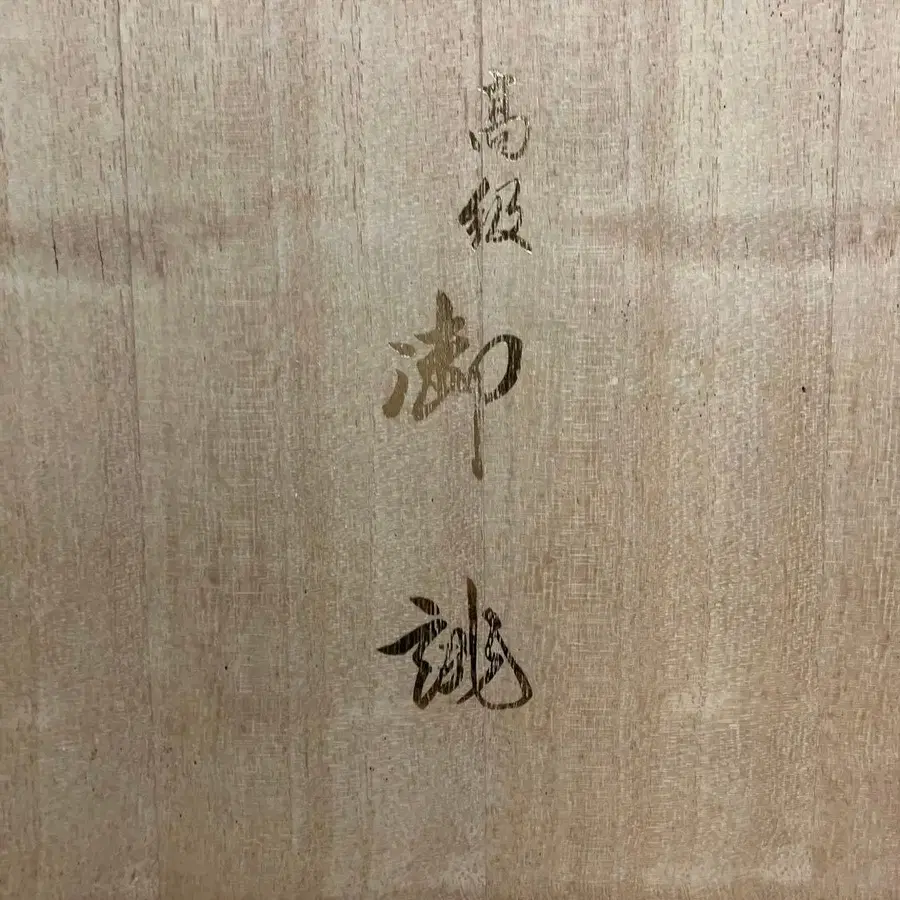 高級
御誂